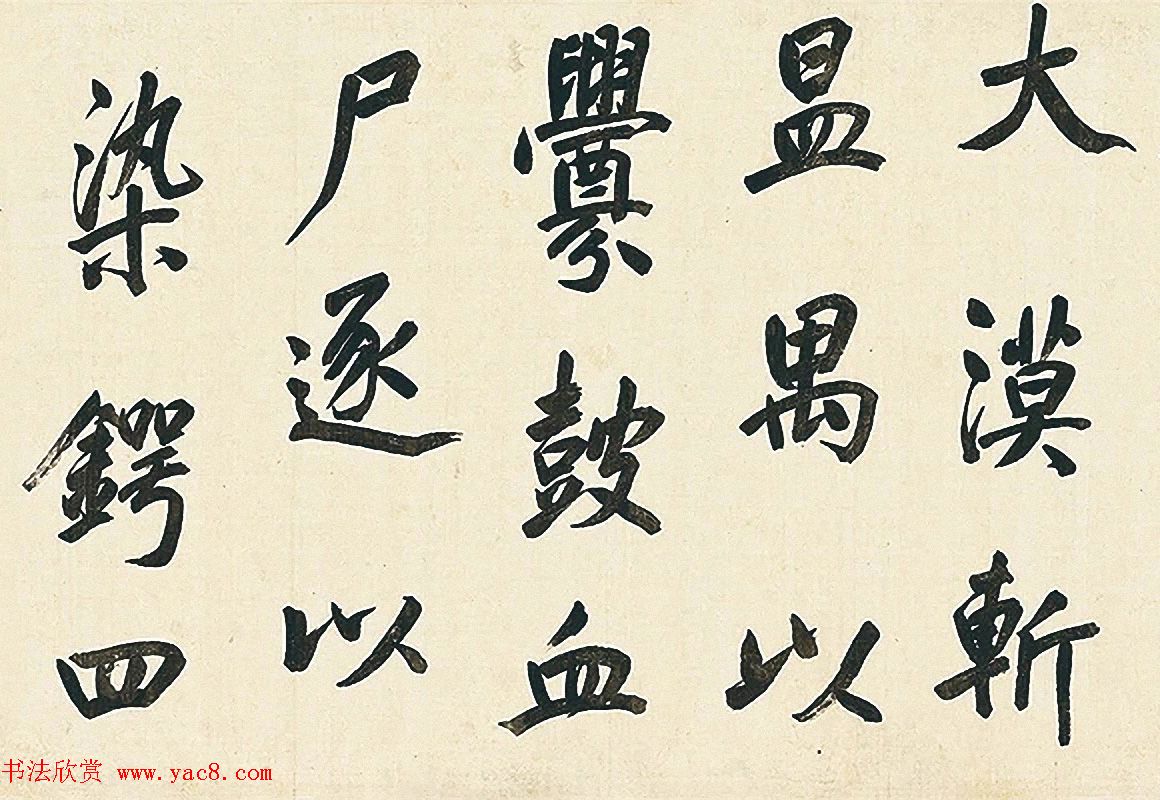 大漠斬
昷禺以
釁鼓血
尸逐以
染鍔四
书法欣赏 www.yac8.com